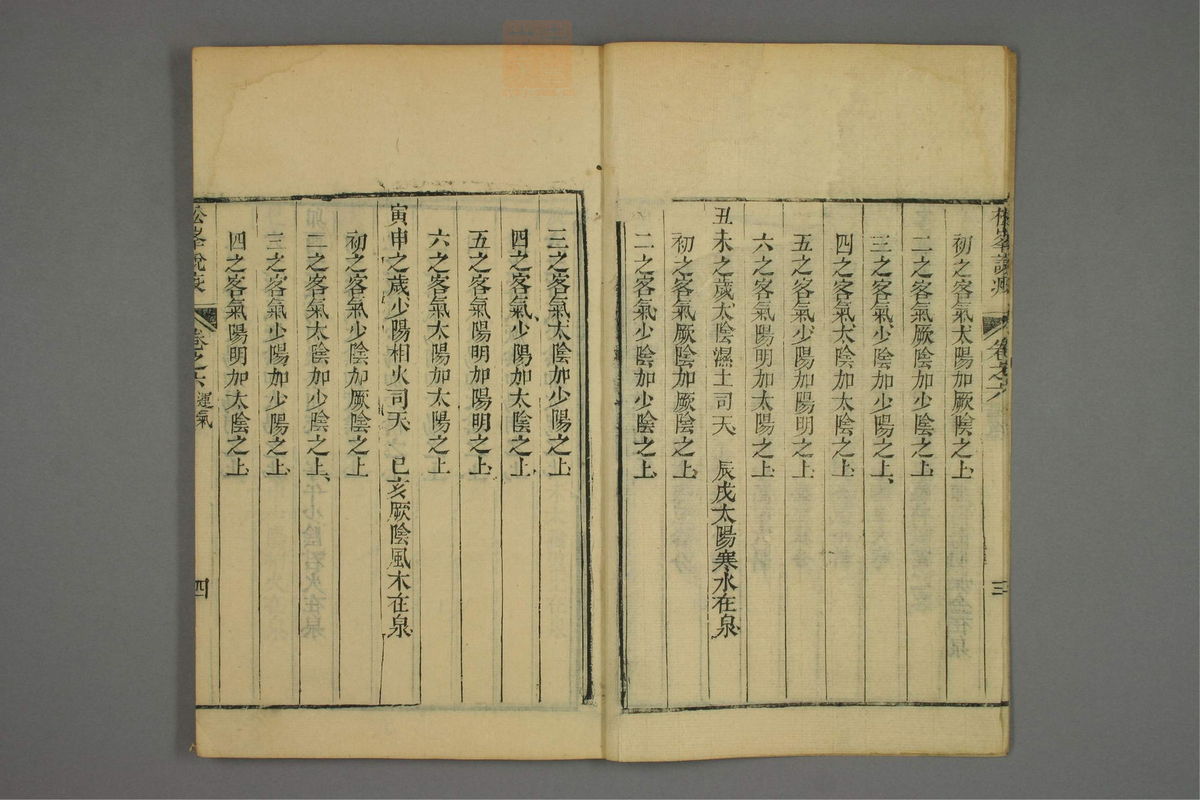 松峯說疫 卷之六 三
初之客氣太陽加厥陰之上
二之客氣厥陰加少陰之上
三之客氣少陰加少陽之上
四之客氣太陰加太陰之上
五之客氣少陽加陽明之上
六之客氣陽明加太陽之上
丑未之歲太陰濕土司天 辰戌太陽寒水在泉
初之客氣厥陰加厥陰之上
二之客氣少陰加少陰之上
三之客氣太陰加少陽之上
四之客氣少陽加太陰之上
五之客氣陽明加陽明之上
六之客氣太陽加太陽之上
寅申之歲少陽相火司天 巳亥厥陰風木在泉
初之客氣少陰加厥陰之上
二之客氣太陰加少陰之上
三之客氣少陽加少陽之上
四之客氣陽明加太陰之上
松峯說疫 卷之六 運氣 四